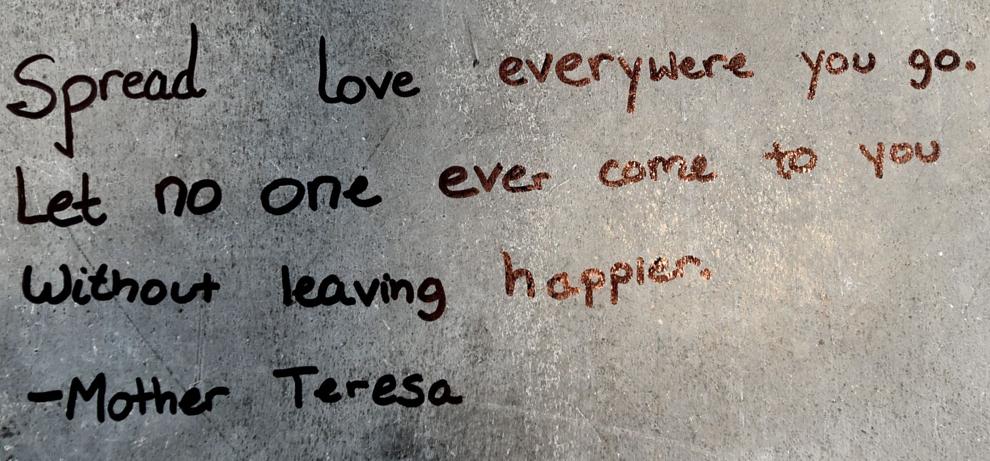 Spread love everywere you go.
Let no one ever come to you
Without leaving happier.
-Mother Teresa